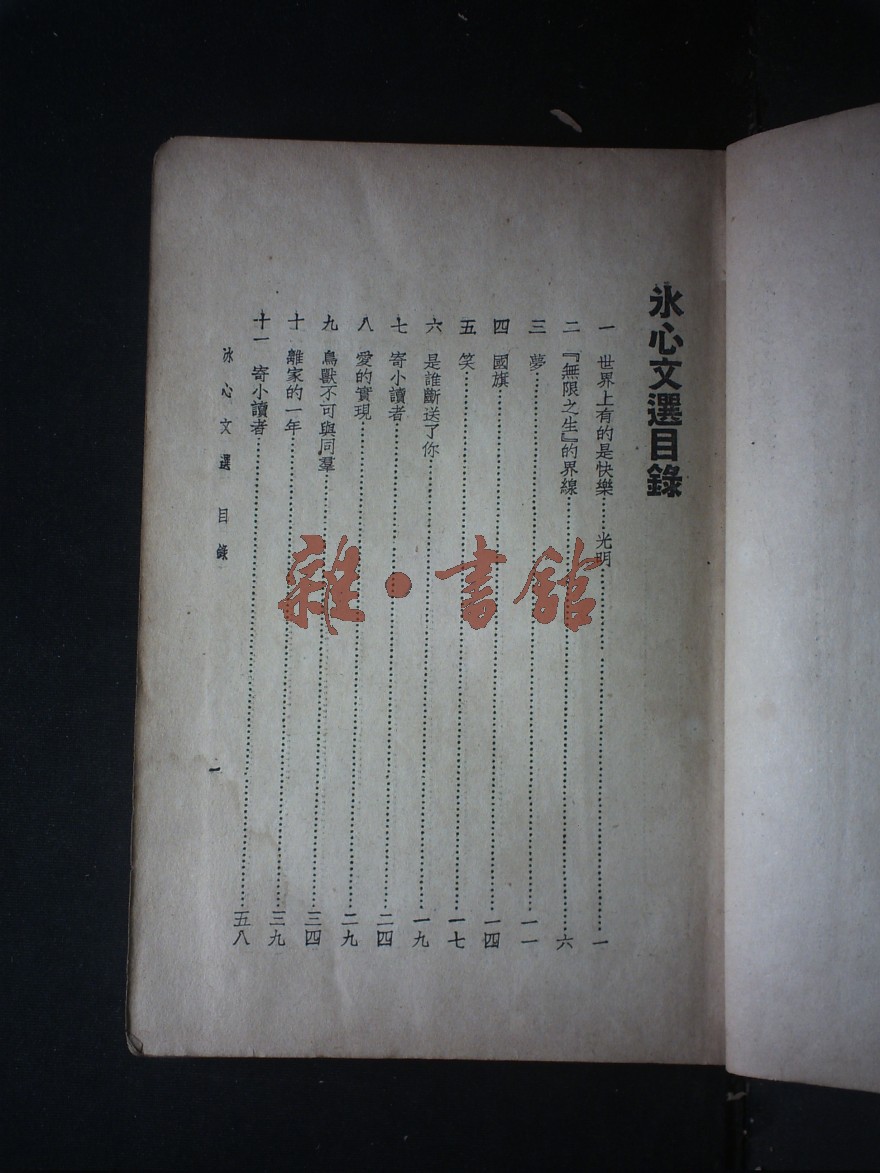 冰心文選目錄
一 世界上有的是快樂……光明……一
二 『無限之生』的界線……六
三 夢……一一
四 國旗……一四
五 笑……一七
六 是誰斷送了你……一九
七 寄小讀者……二四
八 愛的實現……二九
九 鳥獸不可與同羣……三四
十 離家的一年……三九
十一 寄小讀者……五八
冰心文選 目錄
一
雜·書館